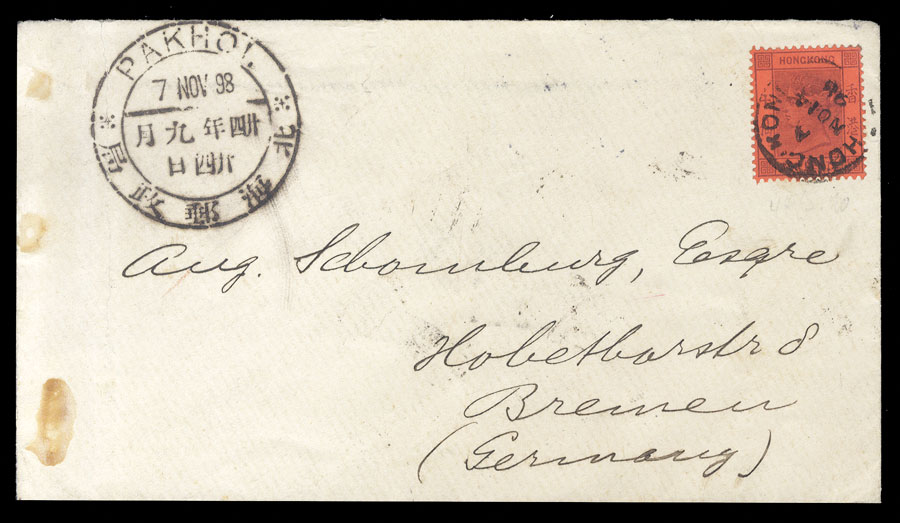 PAKHOI.
7 NOV 98
廿四年九月
廿四日
北海郵政局
HONGKONG
HONG KON
NO 14
98
Aug. Schomburg, Esqre
Hobethorstr 8
Bremen
(Germany)